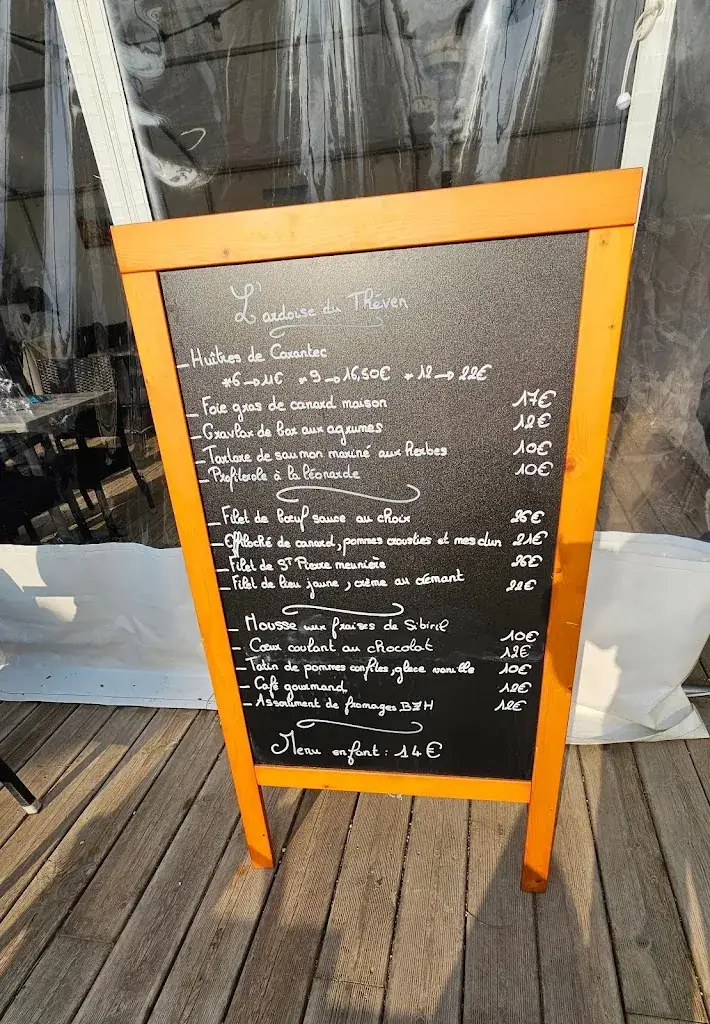 L'ardoise du Théven
_ Huîtres de Carantec
*6 → 11€ *9 → 16,50€ *12 → 22€
_ Foie gras de canard maison 17€
_ Gravlax de bar aux agrumes 12€
_ Tartare de saumon mariné aux herbes 10€
_ Profiterole à la léonarde 10€
_ Filet de bœuf sauce au choix 26€
_ Effiloché de canard, pommes crousties et mesclun 21€
_ Filet de St Pierre meunière 26€
_ Filet de lieu jaune, crème au crémant 22€
_ Mousse aux fraises de Sibiril 10€
_ Cœur coulant au chocolat 12€
_ Tatin de pommes confites, glace vanille 10€
_ Café gourmand 12€
_ Assortiment de fromages BZH 12€
Menu enfant : 14€